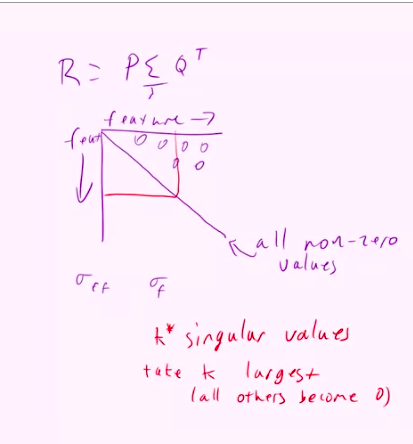 R = P Σ Qᵀ
feature →
feat
0 0 0 0
0 0
all non-zero
values
σff σf
k* singular values
take k largest
(all others become 0)